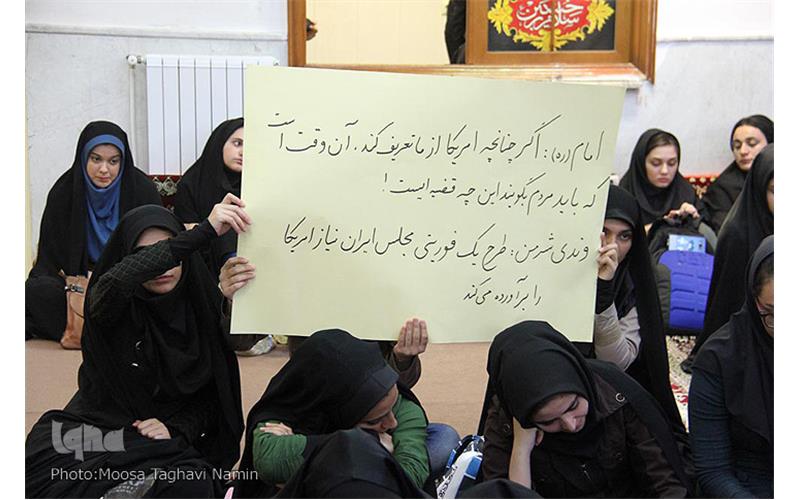 امام (ره): اگر چنانچه امریکا از ما تعریف کند. آن وقت است
که باید مردم بگویند این چه قضیه ایست!
وندی شرمن: طرح یک فوریتی مجلس ایران نیاز امریکا
را برآورده می کند
iqna
Photo:Moosa Taghavi Namin